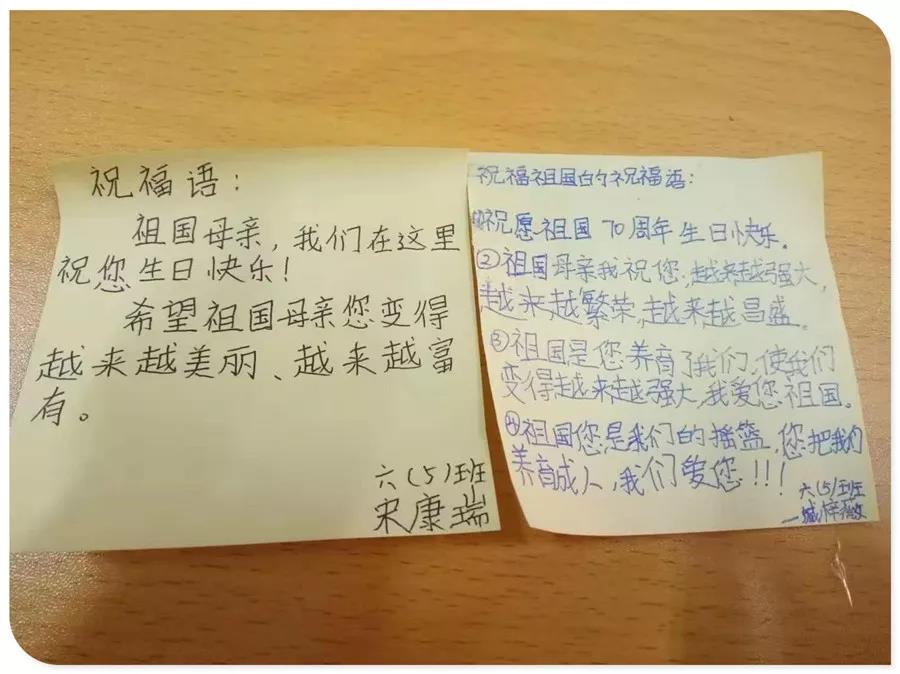 祝福语：
祖国母亲，我们在这里
祝您生日快乐！
希望祖国母亲您变得
越来越美丽、越来越富
有。
六(5)班
宋康瑞
祝福祖国的祝福语：
①祝愿祖国70周年生日快乐。
②祖国母亲我祝您，越来越强大，
越来越繁荣，越来越昌盛。
③祖国是您养育了我们，使我们
变得越来越强大，我爱您祖国。
④祖国您是我们的摇篮，您把我们
养育成人，我们爱您！！！
六(5)班
臧梓